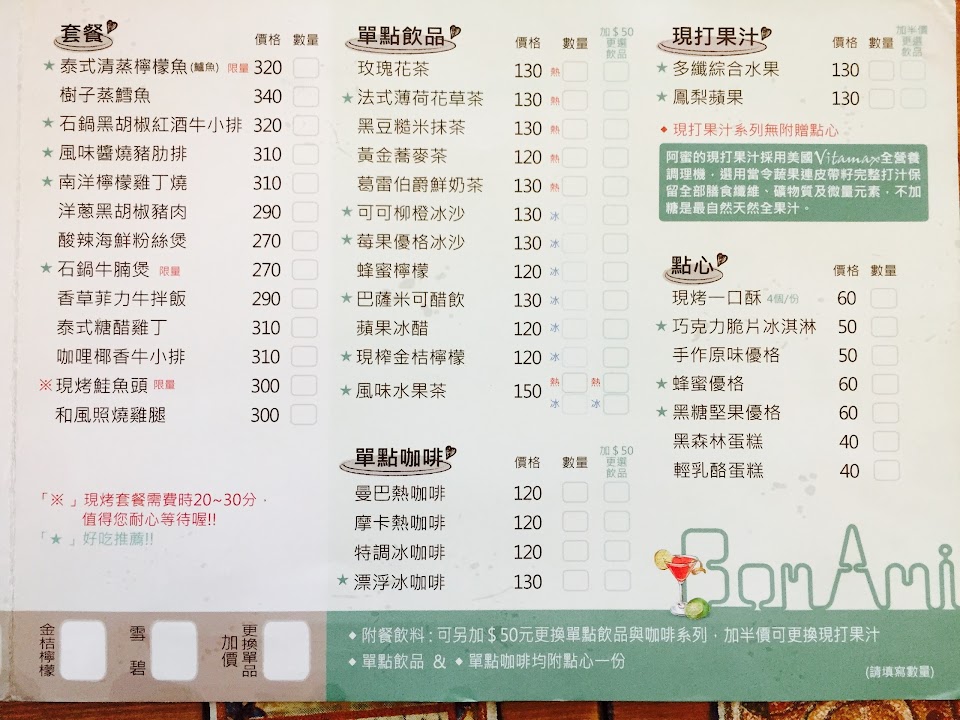 套餐 價格 數量
★ 泰式清蒸檸檬魚(鱸魚) 限量 320
樹子蒸鱈魚 340
★ 石鍋黑胡椒紅酒牛小排 320
★ 風味醬燒豬肋排 310
★ 南洋檸檬雞丁燒 310
洋蔥黑胡椒豬肉 290
酸辣海鮮粉絲煲 270
★ 石鍋牛腩煲 限量 270
香草菲力牛拌飯 290
泰式糖醋雞丁 310
咖哩椰香牛小排 310
※ 現烤鮭魚頭 限量 300
和風照燒雞腿 300
「※」現烤套餐需費時20~30分，
值得您耐心等待喔!!
「★」好吃推薦!!
單點飲品 價格 數量 加$50更選飲品
玫瑰花茶 130 熱
★ 法式薄荷花草茶 130 熱
黑豆糙米抹茶 130 熱
黃金蕎麥茶 120 熱
葛雷伯爵鮮奶茶 130 熱
★ 可可柳橙冰沙 130 冰
★ 莓果優格冰沙 130 冰
蜂蜜檸檬 120 冰
★ 巴薩米可醋飲 130 冰
蘋果冰醋 120 冰
★ 現榨金桔檸檬 120 冰
★ 風味水果茶 150 熱 熱
冰 冰
單點咖啡 價格 數量 加$50更選飲品
曼巴熱咖啡 120
摩卡熱咖啡 120
特調冰咖啡 120
★ 漂浮冰咖啡 130
現打果汁 價格 數量 加半價更選飲品
★ 多纖綜合水果 130
★ 鳳梨蘋果 130
◆ 現打果汁系列無附贈點心
阿蜜的現打果汁採用美國Vitamax全營養
調理機，選用當令蔬果連皮帶籽完整打汁保
留全部膳食纖維、礦物質及微量元素，不加
糖是最自然天然全果汁。
點心 價格 數量
現烤一口酥 4個/份 60
★ 巧克力脆片冰淇淋 50
手作原味優格 50
★ 蜂蜜優格 60
★ 黑糖堅果優格 60
黑森林蛋糕 40
輕乳酪蛋糕 40
Bon Ami
金桔檸檬
雪碧
更換單品加價
◆ 附餐飲料：可另加$50元更換單點飲品與咖啡系列，加半價可更換現打果汁
◆ 單點飲品 & ◆ 單點咖啡均附點心一份
(請填寫數量)